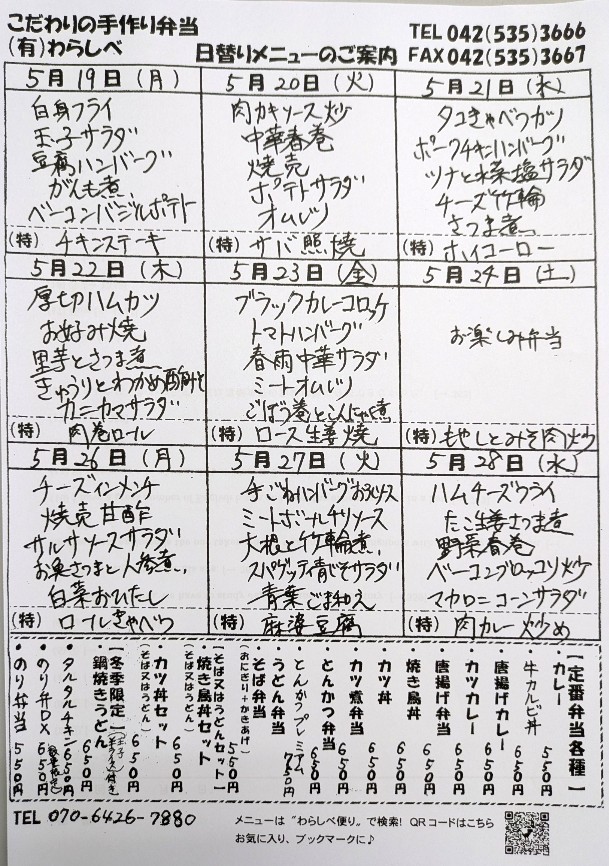 こだわりの手作り弁当
(有)わらしべ
日替りメニューのご案内
TEL 042(535)3666
FAX 042(535)3667
5月19日(月)
白身フライ
玉子サラダ
豆腐ハンバーグ
がんも煮
ベーコンバジルポテト
(特) チキンステーキ
5月20日(火)
肉カキソース炒
中華春巻
焼売
ポテトサラダ
オムレツ
(特) サバ照焼
5月21日(水)
タコきゃべつカツ
ポークチキンハンバーグ
ツナと水菜塩サラダ
チーズ竹輪
さつま煮
(特) ホイコーロー
5月22日(木)
厚切ハムカツ
お好み焼
里芋とさつま煮
きゅうりとわかめ酢みそ
カニカマサラダ
(特) 肉巻ロール
5月23日(金)
ブラックカレーコロッケ
トマトハンバーグ
春雨中華サラダ
ミートオムレツ
ごぼう巻とこんにゃく煮
(特) ロース生姜焼
5月24日(土)
お楽しみ弁当
(特) もやしとみそ肉炒
5月26日(月)
チーズインメンチ
焼売甘酢
サルサソースサラダ
お魚さつまと人参煮
白菜おひたし
(特) ロールきゃべつ
5月27日(火)
手ごねハンバーグおろしソース
ミートボールチリソース
大根と竹輪煮
スパゲッティ青じそサラダ
青葉ごま和え
(特) 麻婆豆腐
5月28日(水)
ハムチーズフライ
たこ生姜さつま煮
野菜春巻
ベーコンブロッコリ炒
マカロニコーンサラダ
(特) 肉カレー炒め
【定番弁当各種】
・カレー 550円
・牛カルビ丼 650円
・唐揚げカレー 650円
・カツカレー 650円
・唐揚げ弁当 650円
・焼き鳥丼 650円
・カツ丼 650円
・カツ煮弁当 650円
・とんかつ弁当 650円
・とんかつプレミアム 750円
・うどん弁当
・そば弁当
(おにぎり+かきあげ) 550円
【そば又はうどんセット】
・焼き鳥丼セット
(そば又はうどん) 650円
・カツ丼セット
(そば又はうどん) 650円
【冬季限定】
・鍋焼きうどん 650円
・タルタルチキン 650円
・のり弁DX 650円
・のり弁当 550円
TEL 070-6426-7880
メニューは"わらしべ便り"で検索! QRコードはこちら
お気に入り、ブックマークに♪